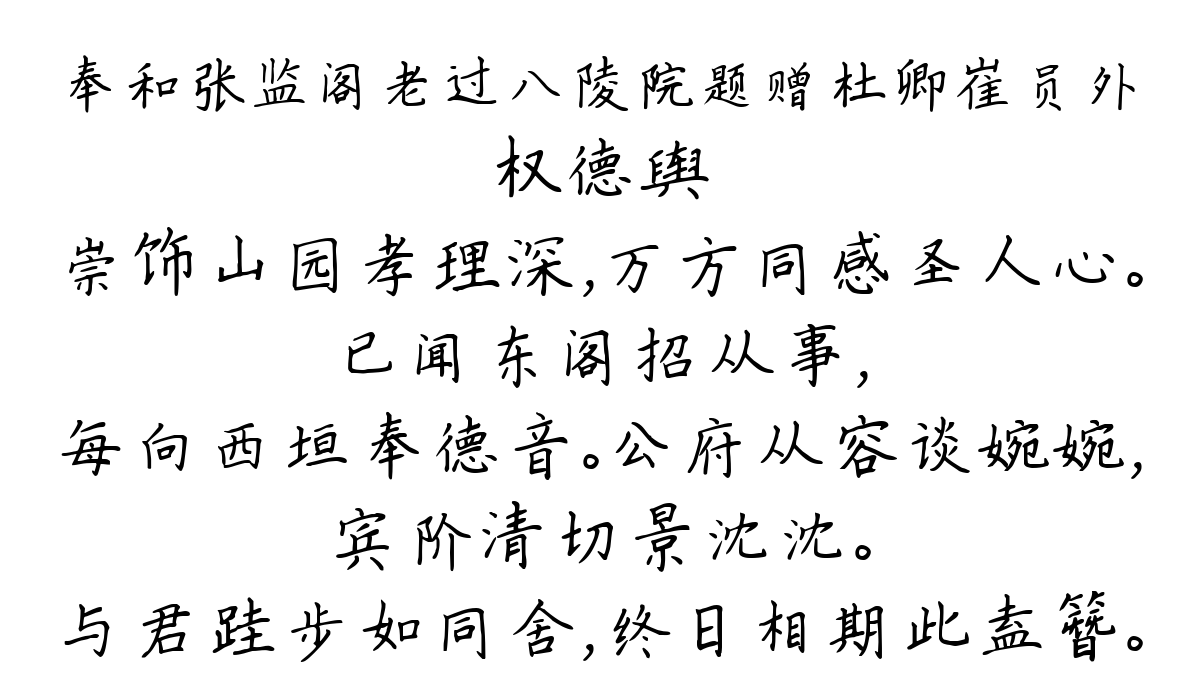 奉和张监阁老过八陵院题赠杜卿崔员外
权德舆
崇饰山园孝理深,万方同感圣人心。
已闻东阁招从事,
每向西垣奉德音。公府从容谈婉婉,
宾阶清切景沈沈。
与君跬步如同舍,终日相期此盍簪。